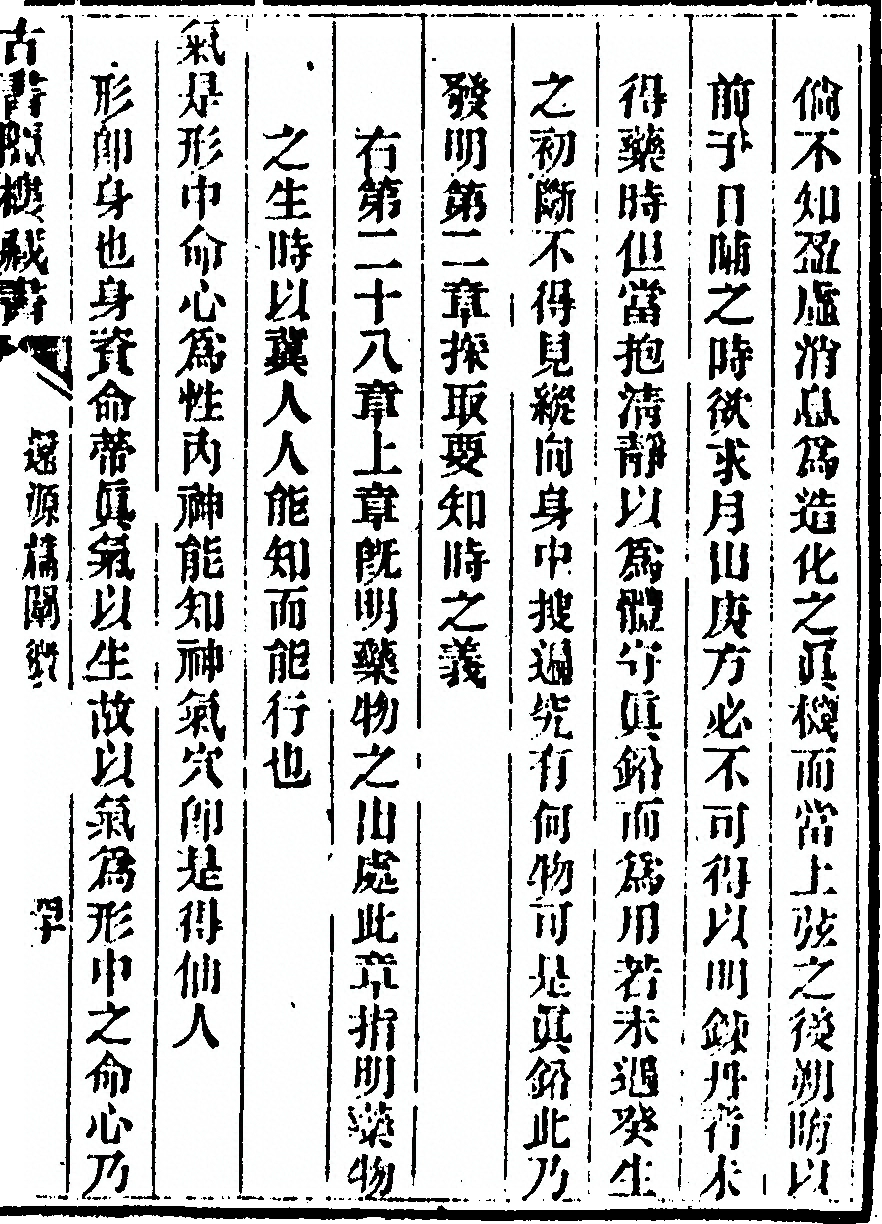 倘不知盈虛消息爲造化之眞機而當上弦之後朔晦以
前子日晡之時欲求月出庚方必不可得以明鍊丹者未
得藥時但當抱淸靜以爲體守眞鉛而爲用若未遇癸生
之初斷不得見縱向身中搜遍究有何物可是眞鉛此乃
發明第二章採取要知時之義
右第二十八章上章旣明藥物之出處此章指明藥物
之生時以冀人人能知而能行也
氣是形中命心爲性內神能知神氣穴卽是得仙人
形卽身也身資命蒂眞氣以生故以氣爲形中之命心乃
古書隱樓藏書
還源篇闡微